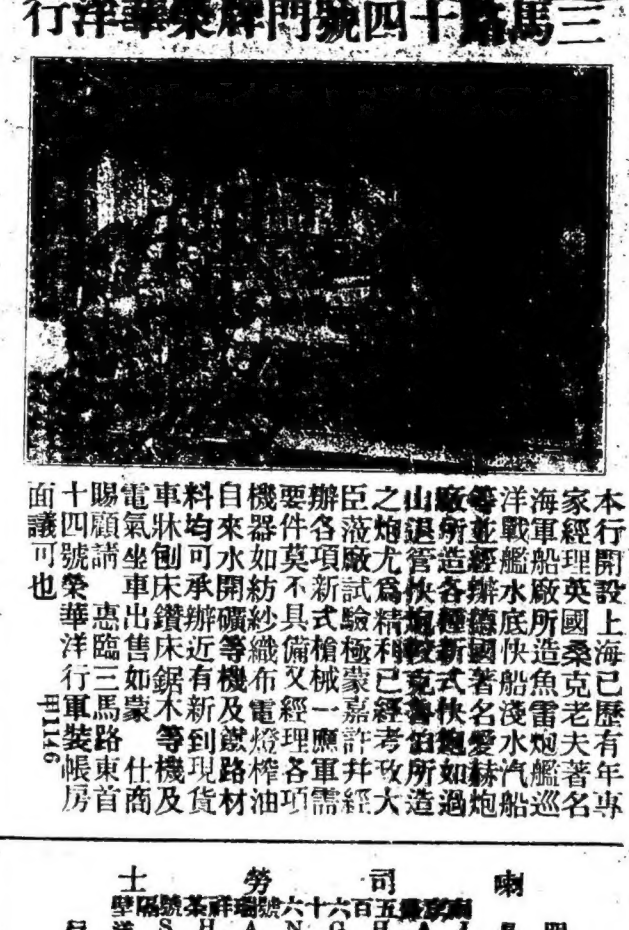 三馬路十四號門牌榮華洋行
本行開設上海已歷有年專
家經理英國桑克老夫著名
海軍船廠所造魚雷炮艦巡
洋戰艦水底快船淺水汽船
等並經辦德國著名愛赫炮
廠所造各種新式快炮如過
山退管快炮較克魯伯所造
之炮尤為精利已經考政大
臣蒞廠試驗極蒙嘉許幷經
辦各項新式槍械一應軍需
要件莫不具備又經理各項
機器如紡紗織布電燈榨油
自來水開礦等機及鐵路材
料均可承辦近有新到現貨
車牀刨床鑽床鋸木等機及
電氣坐車出售如蒙 仕商
賜顧請 惠臨三馬路東首
十四號榮華洋行軍裝帳房
面議可也
甲1146
喇司勞士
五百六十六號瑞祥茶號隔壁